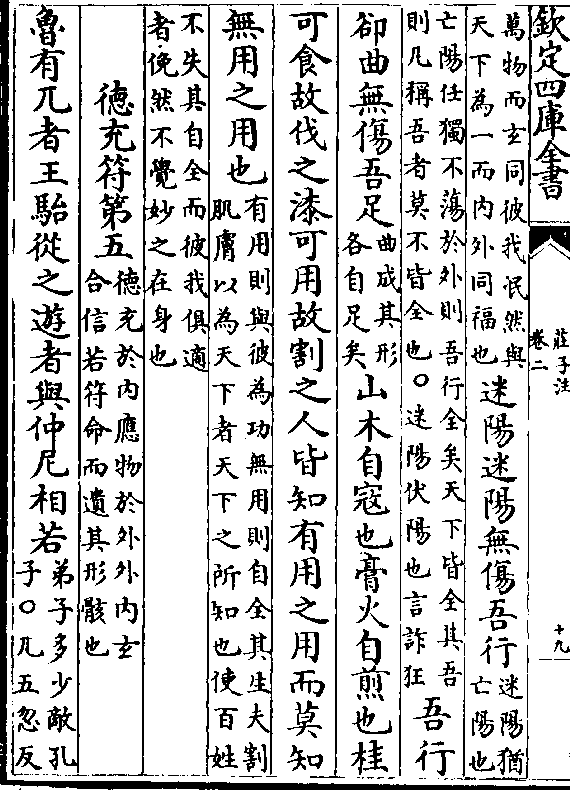 欽定四庫全書
莊子注
卷二
十九
萬物而玄同彼我泯然與
天下為一而内外同福也
迷陽迷陽無傷吾行
迷陽猶
亡陽也
亡陽任獨不蕩於外則吾行全矣天下皆全其吾
則凡稱吾者莫不皆全也○迷陽伏陽也言詐狂
吾行
卻曲無傷吾足
曲成其形
各自足矣
山木自寇也膏火自煎也桂
可食故伐之漆可用故割之人皆知有用之用而莫知
無用之用也
有用則與彼為功無用則自全其生夫割
肌膚以為天下者天下之所知也使百姓
不失其自全而彼我俱適
者俛然不覺妙之在身也
德充符第五
德充於内應物於外外内玄
合信若符命而遺其形骸也
魯有兀者王駘從之遊者與仲尼相若
弟子多少敵孔
子○兀五忽反